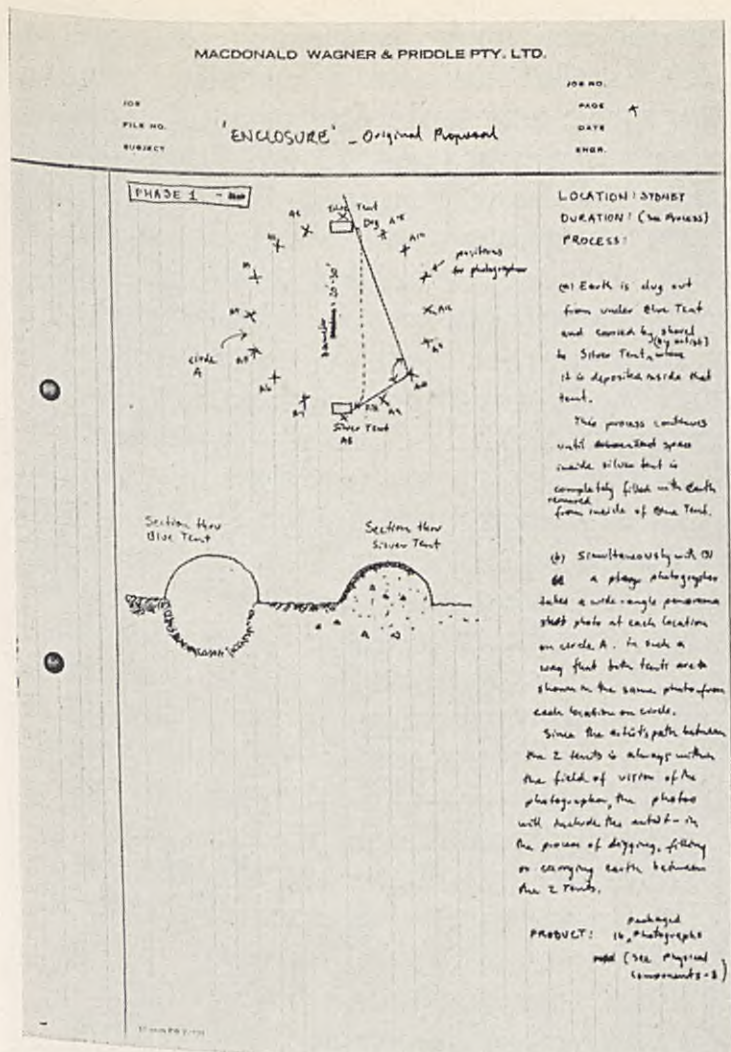 MACDONALD WAGNER & PRIDDLE PTY. LTD.
JOB NO.
JOB
PAGE
FILE NO.
'ENCLOSURE' - Original Proposal
DATE
SUBJECT
ENGR.
PHASE 1 -
Blue Tent
Dog
positions
for photographer
circle
A
Diameter 20'-30'
Silver Tent
Section thru
Blue Tent
Section thru
Silver Tent
LOCATION: SYDNEY
DURATION: (See Process)
PROCESS:
(a) Earth is dug out
from under Blue Tent
and carried by shovel
(by artist)
to Silver Tent, where
it is deposited inside that
tent.
This process continues
until space
inside silver tent is
completely filled with Earth
removed
from inside of Blue Tent.
(b) Simultaneously with
a photographer
takes a wide-angle panorama
shot photo at each location
on circle A. in such a
way that both tents are
shown in the same photo from
each location on circle.
Since the artist's path between
the 2 tents is always within
the field of vision of the
photographer, the photos
will include the artist - in
the process of digging, filling
or carrying earth between
the 2 Tents.
packaged
PRODUCT: 16, Photographs
(See Physical
Components-3)